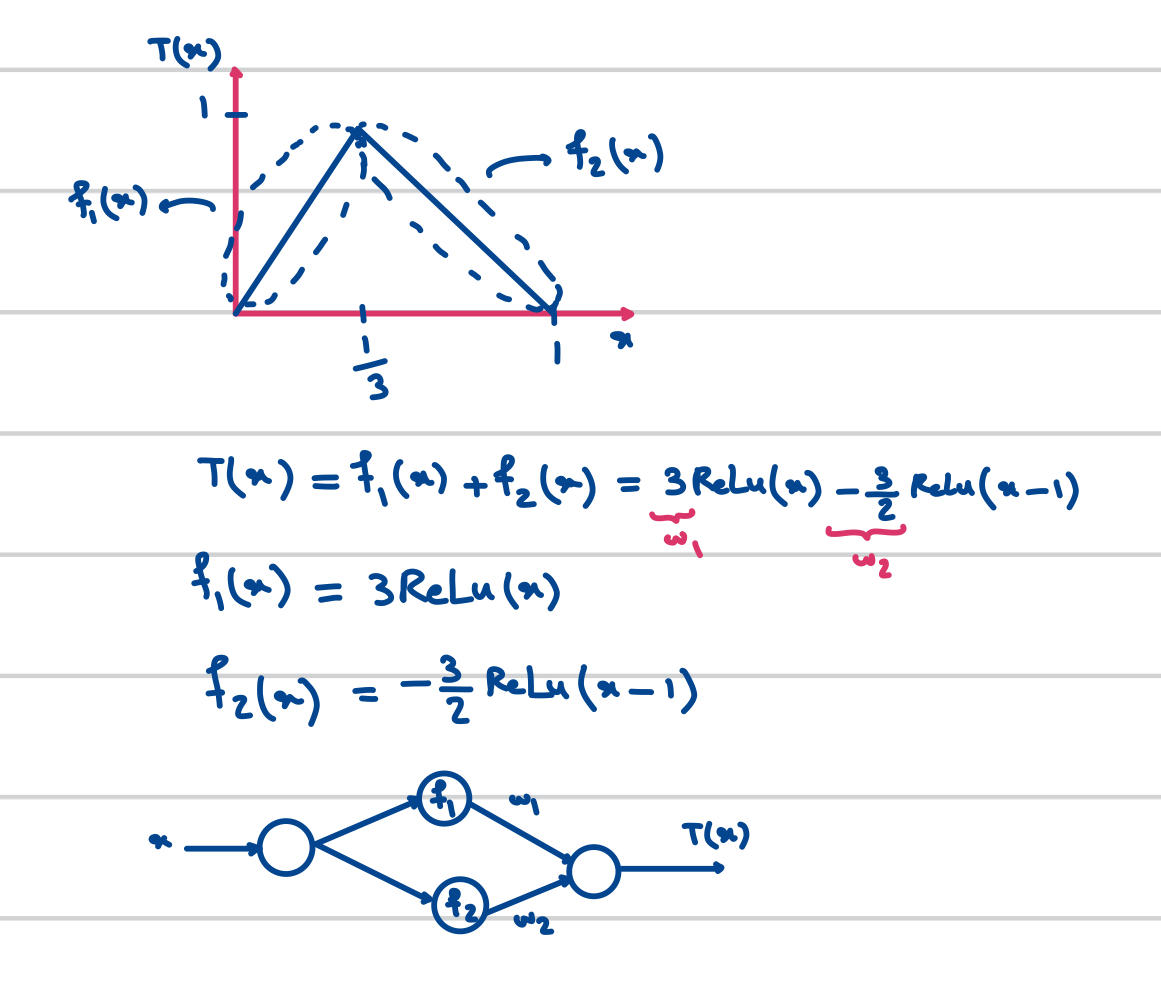 T(x)
1
f₂(x)
f₁(x)
x
1/3
1
T(x) = f₁(x) + f₂(x) = 3ReLu(x) - 3/2 ReLu(x-1)
w₁ w₂
f₁(x) = 3ReLu(x)
f₂(x) = -3/2 ReLu(x-1)
f₁ w₁
x T(x)
f₂ w₂